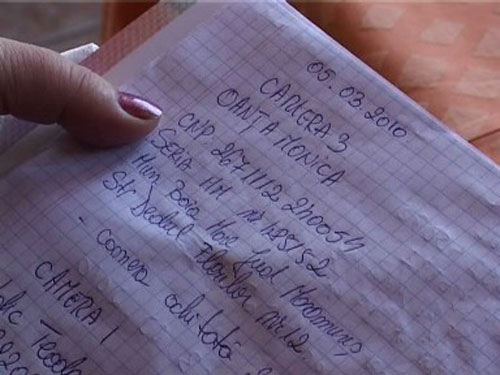 05.03.2010
CAMERA 3
OANȚA MONICA
CNP 2671112240054
SERIA MM nr
Mun Baia Mare Jud Maramureș
Str Dealul Florilor nr 12
- camera achitată
CAMERA 1